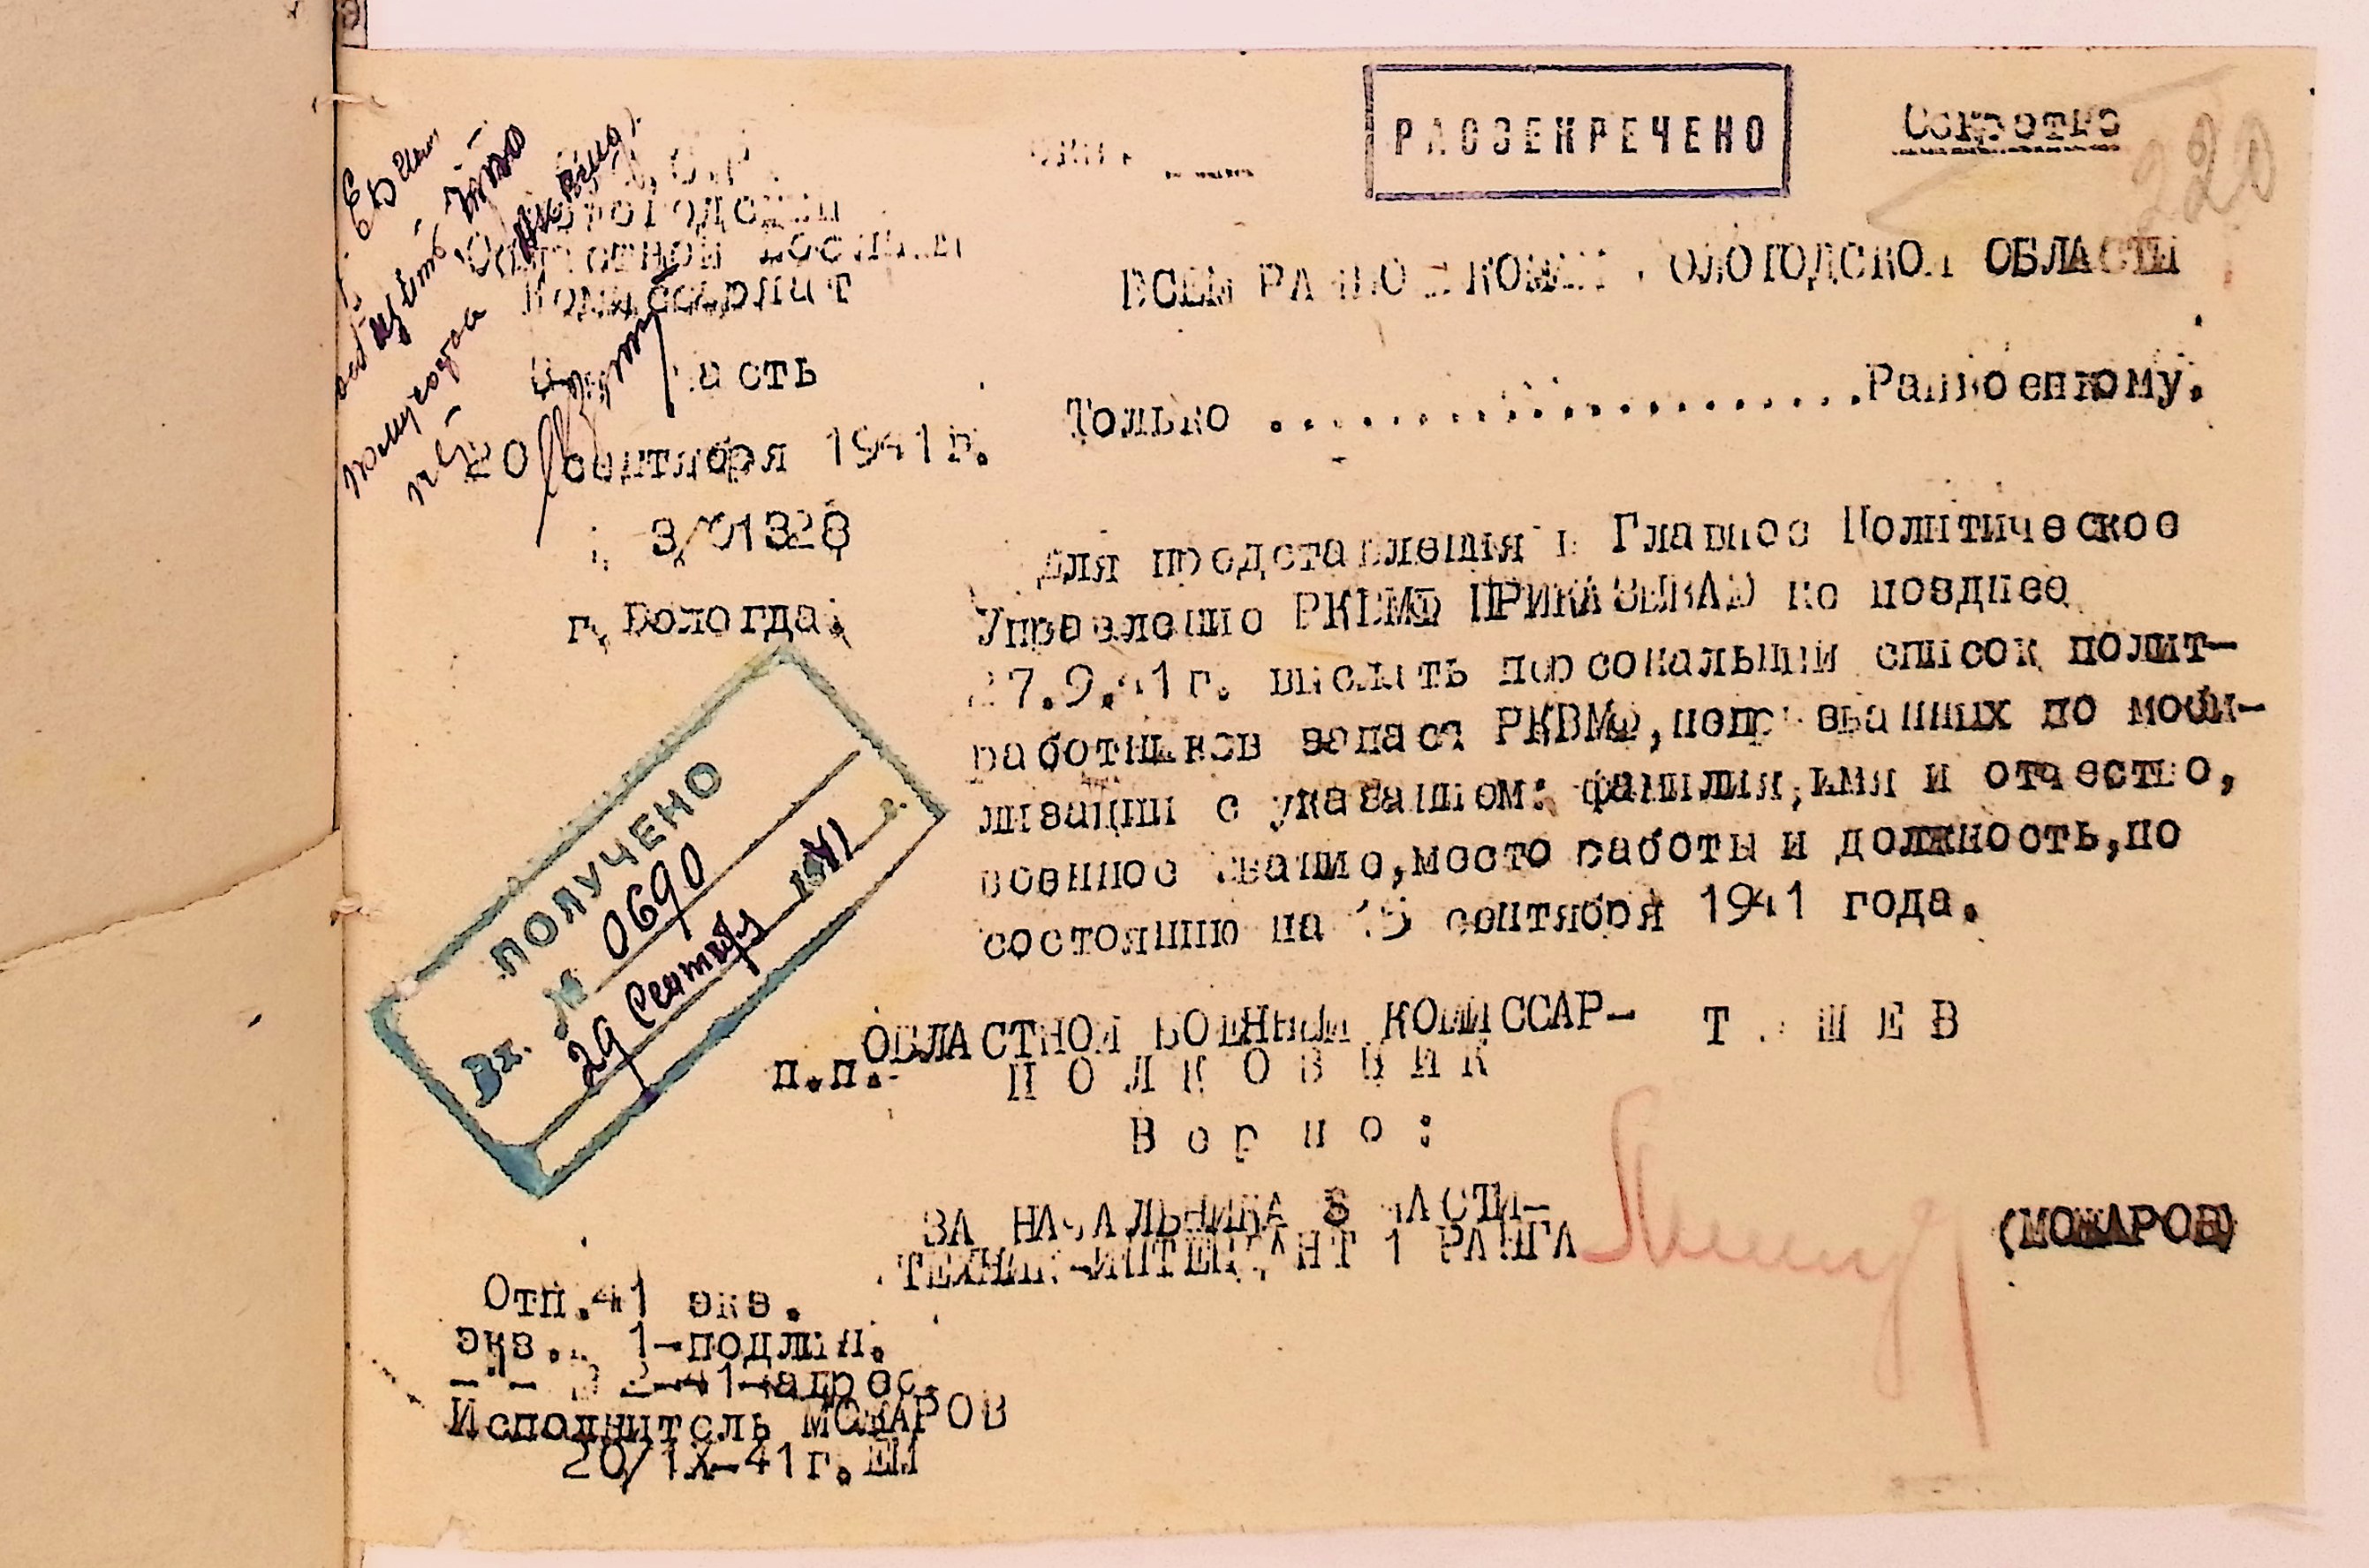 РАССЕКРЕЧЕНО
Секретно
220
ВОЛОГОДСКИЙ
ОБЛАСТНОЙ ВОЕННЫЙ
КОМИССАРИАТ
часть
20 сентября 1941г.
3/01328
г. Вологда.
ВСЕМ РАЙВОЕНКОМАМ ВОЛОГОДСКОЙ ОБЛАСТИ
Только ....................Райвоенкому.
Для представления в Главное Политическое
Управление РКВМФ ПРИКАЗЫВАЮ не позднее
27.9.41г. выслать персональный список полит-
работников запаса РКВМФ, непризванных по моби-
лизации с указанием: фамилия, имя и отчество,
военное звание, место работы и должность, по
состоянию на 15 сентября 1941 года.
ПОЛУЧЕНО
Вх. № 0690
29 Сентября 1941 г.
ОБЛАСТНОЙ ВОЕННЫЙ КОМИССАР-
п.п.- ПОЛКОВНИК
Верно:
ЗА НАЧАЛЬНИКА 3 ЧАСТИ-
ТЕХНИК-ИНТЕНДАНТ 1 РАНГА (МОКАРОВ)
Отп.41 экз.
экз. 1-подлин.
-"- 2-41-адрес.
Исполнитель МОКАРОВ
20/1Х-41г. ЕМ